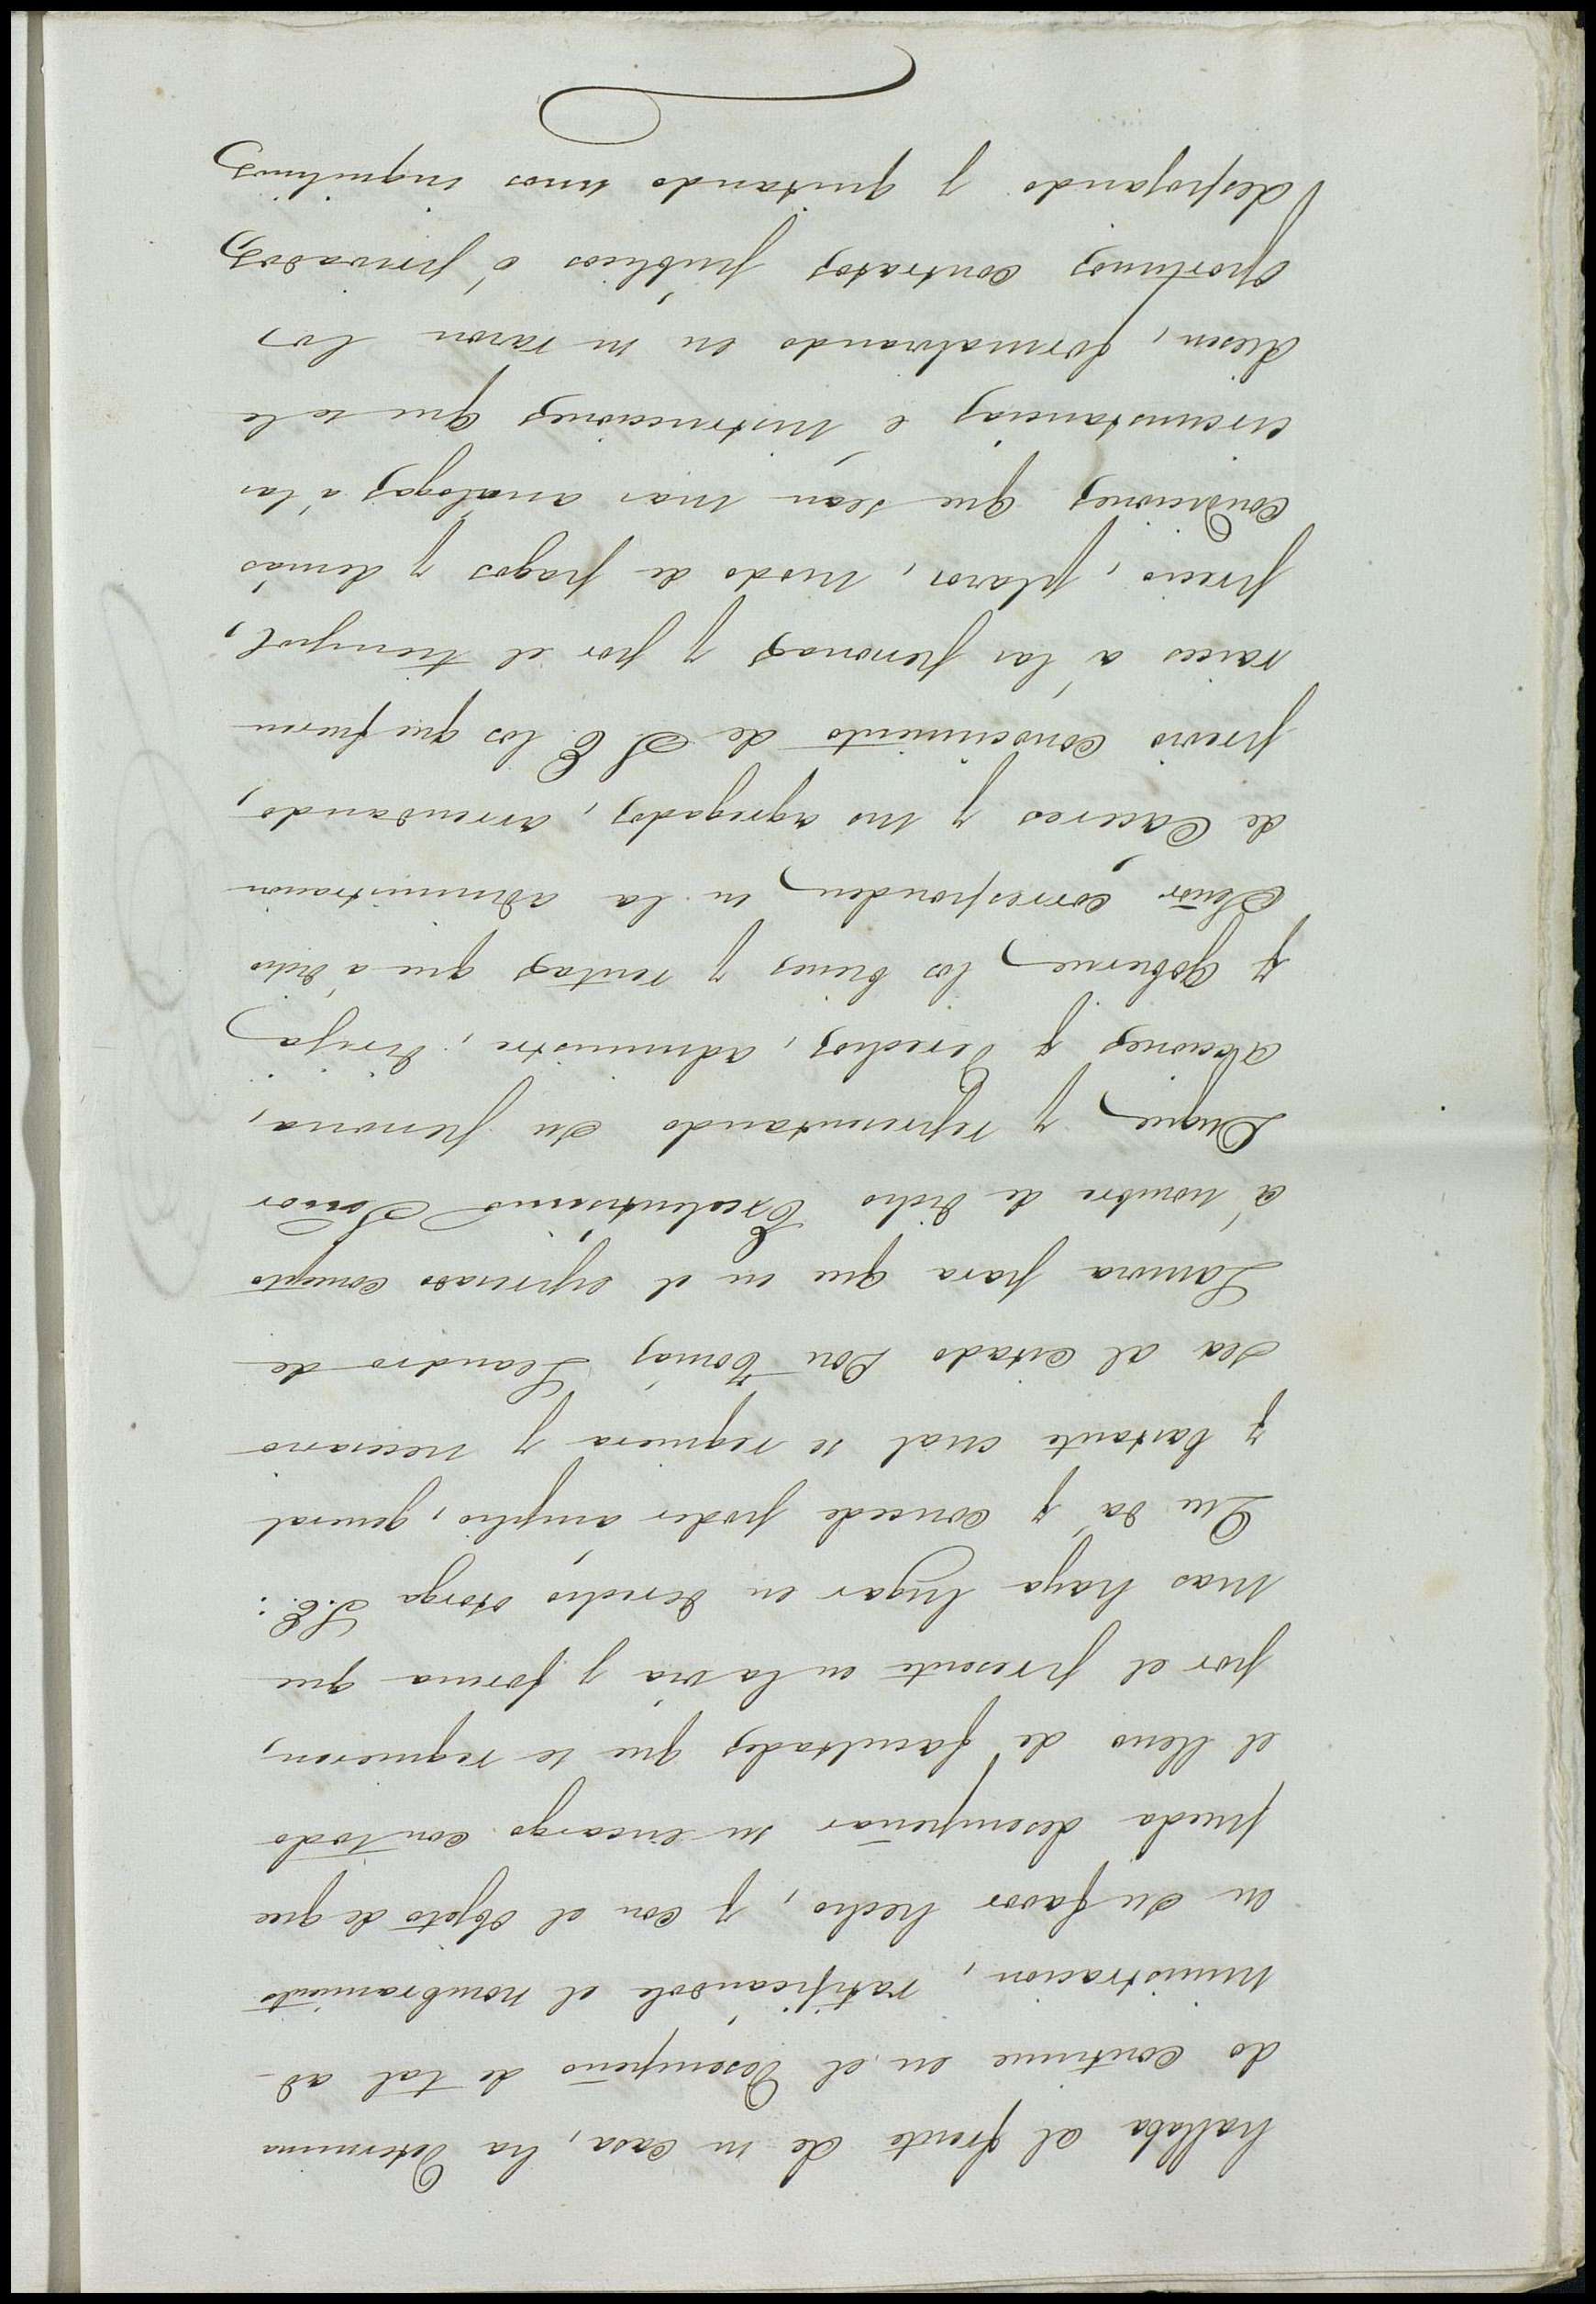 hallaba al frente de su casa, ha determina
do continue en el desempeño de tal ad-
ministracion, ratificandole el nombramiento
en su favor hecho, y con el objeto de que
pueda desempeñar su encargo con todo
el lleno de facultades que se requieren,
por el presente en la vía y forma que
mas haya lugar en derecho otorga S.E.:
Que dá y concede poder ámplio, general
y bastante cual se requiera y necesario
sea al citado Don Tomás Leandro de
Zamora para que en el espresado concepto
á nombre de dicho Excelentísimo Señor
Duque y representando su persona,
acciones y derechos, administre, dirija
y gobierne los bienes y rentas que á dicho
Señor corresponden en la administracion
de Cáceres y sus agregados, arrendando,
previo conocimiento de S.E. los que fueren
raices á las personas y por el tiempo,
precio, plazos, modo de pagos y demás
condiciones que sean mas analogas á las
circunstancias é instrucciones que se le
diesen, formalizando en su razon los
oportunos contratos públicos ó privados,
despojando y quitando unos inquilinos